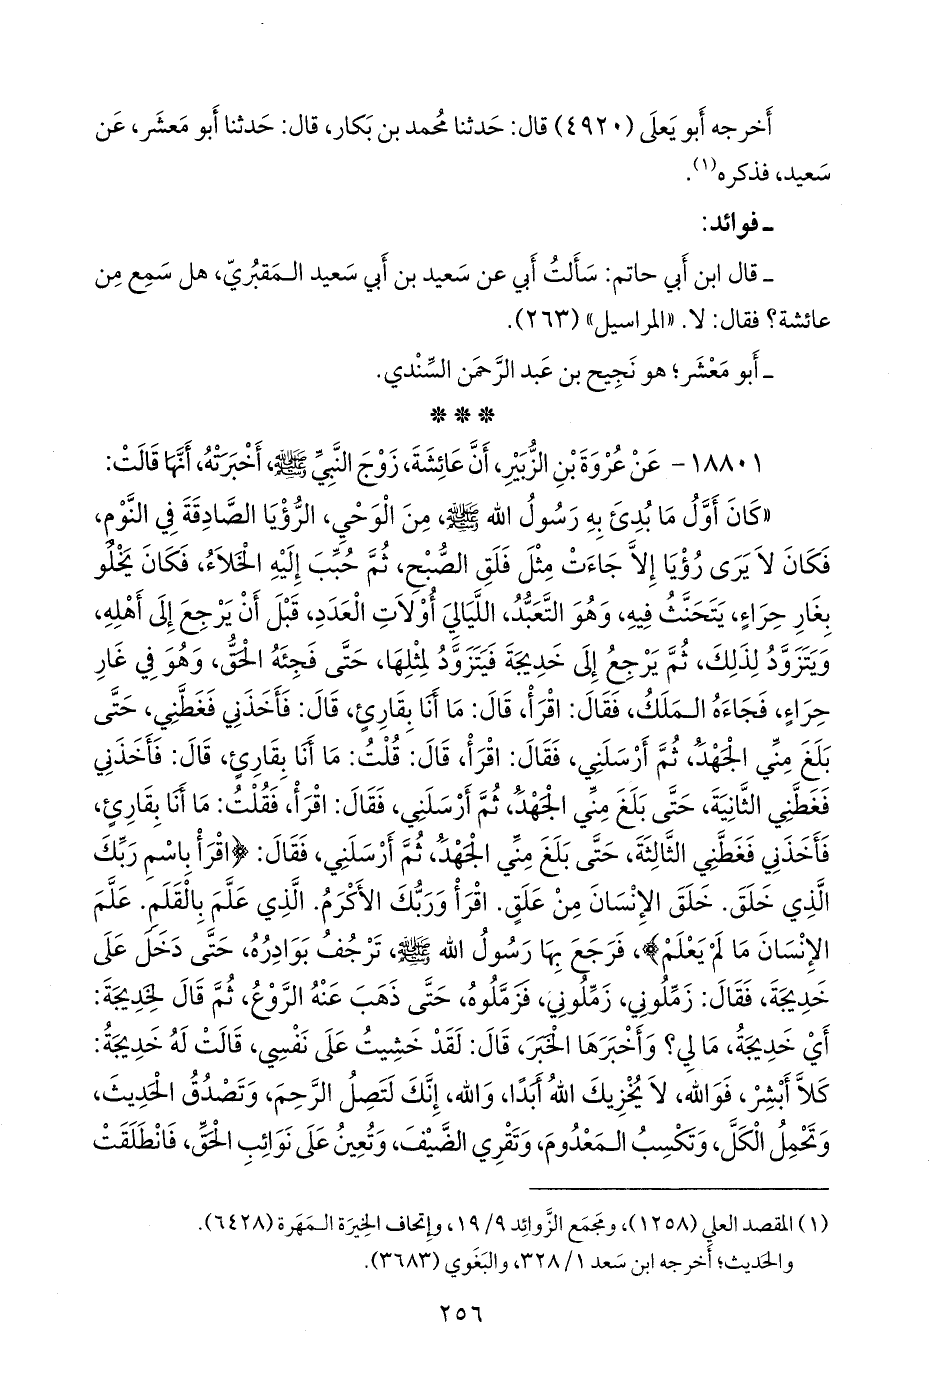 أَخرجه أَبو يَعلَى (٤٩٢٠) قال: حَدثنا مُحمد بن بَكار، قال: حَدثنا أَبو مَعشَر، عَن
سَعيد، فذكره(١).
ـ فوائد:
ـ قال ابن أَبي حاتم: سَأَلتُ أَبي عن سَعيد بن أَبي سَعيد المَقبُريّ، هل سَمِع مِن
عائشة؟ فقال: لا. «المراسيل» (٢٦٣).
ـ أَبو مَعْشَر؛ هو نَجِيح بن عَبد الرَّحمَن السِّنْدي.
* * *
١٨٨٠١ - عَنْ عُرْوَةَ بْنِ الزُّبَيْرِ، أَنَّ عَائِشَةَ، زَوْجَ النَّبِيِّ ﷺ، أَخْبَرَتْهُ، أَنَّهَا قَالَتْ:
«كَانَ أَوَّلُ مَا بُدِئَ بِهِ رَسُولُ الله ﷺ، مِنَ الْوَحْيِ، الرُّؤْيَا الصَّادِقَةَ فِي النَّوْمِ،
فَكَانَ لاَ يَرَى رُؤْيَا إِلاَّ جَاءَتْ مِثْلَ فَلَقِ الصُّبْحِ، ثُمَّ حُبِّبَ إِلَيْهِ الْخَلاَءُ، فَكَانَ يَخْلُو
بِغَارِ حِرَاءٍ، يَتَحَنَّثُ فِيهِ، وَهُوَ التَّعَبُّدُ، اللَّيَالِيَ أُوْلاَتِ الْعَدَدِ، قَبْلَ أَنْ يَرْجِعَ إِلَى أَهْلِهِ،
وَيَتَزَوَّدُ لِذَلِكَ، ثُمَّ يَرْجِعُ إِلَى خَدِيجَةَ فَيَتَزَوَّدُ لِمِثْلِهَا، حَتَّى فَجِئَهُ الْحَقُّ، وَهُوَ فِي غَارِ
حِرَاءٍ، فَجَاءَهُ الـمَلَكُ، فَقَالَ: اقْرَأْ، قَالَ: مَا أَنَا بِقَارِئٍ، قَالَ: فَأَخَذَنِي فَغَطَّنِي، حَتَّى
بَلَغَ مِنِّي الْجَهْدُ، ثُمَّ أَرْسَلَنِي، فَقَالَ: اقْرَأْ، قَالَ: قُلْتُ: مَا أَنَا بِقَارِئٍ، قَالَ: فَأَخَذَنِي
فَغَطَّنِي الثَّانِيَةَ، حَتَّى بَلَغَ مِنِّي الْجَهْدُ، ثُمَّ أَرْسَلَنِي، فَقَالَ: اقْرَأْ، فَقُلْتُ: مَا أَنَا بِقَارِئٍ،
فَأَخَذَنِي فَغَطَّنِي الثَّالِثَةَ، حَتَّى بَلَغَ مِنِّي الْجَهْدُ، ثُمَّ أَرْسَلَنِي، فَقَالَ: ﴿اقْرَأْ بِاسْمِ رَبِّكَ
الَّذِي خَلَقَ. خَلَقَ الإِنْسَانَ مِنْ عَلَقٍ. اقْرَأْ وَرَبُّكَ الأَكْرَمُ. الَّذِي عَلَّمَ بِالْقَلَمِ. عَلَّمَ
الإِنْسَانَ مَا لَمْ يَعْلَمْ﴾، فَرَجَعَ بِهَا رَسُولُ الله ﷺ، تَرْجُفُ بَوَادِرُهُ، حَتَّى دَخَلَ عَلَى
خَدِيجَةَ، فَقَالَ: زَمِّلُونِي، زَمِّلُونِي، فَزَمَّلُوهُ، حَتَّى ذَهَبَ عَنْهُ الرَّوْعُ، ثُمَّ قَالَ لِخَدِيجَةَ:
أَيْ خَدِيجَةُ، مَا لِي؟ وَأَخْبَرَهَا الْخَبَرَ، قَالَ: لَقَدْ خَشِيتُ عَلَى نَفْسِي، قَالَتْ لَهُ خَدِيجَةُ:
كَلاَّ أَبْشِرْ، فَوَالله، لاَ يُخْزِيكَ اللهُ أَبَدًا، وَالله، إِنَّكَ لَتَصِلُ الرَّحِمَ، وَتَصْدُقُ الْحَدِيثَ،
وَتَحْمِلُ الْكَلَّ، وَتَكْسِبُ الـمَعْدُومَ، وَتَقْرِي الضَّيْفَ، وَتُعِينُ عَلَى نَوَائِبِ الْحَقِّ، فَانْطَلَقَتْ
(١) المقصد العلي (١٢٥٨)، ومَجمَع الزَّوائِد ٩/ ١٩، وإتحاف الخِيرَة الـمَهَرة (٦٤٢٨).
والحَديث؛ أَخرجه ابن سَعد ١/ ٣٢٨، والبَغَوي (٣٦٨٣).
٢٥٦